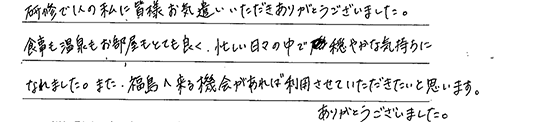 研修で1人の私に皆様お気遣いいただきありがとうございました。
食事も温泉もお部屋もとても良く、忙しい日々の中で穏やかな気持ちに
なれました。また、福島へ来る機会があれば利用させていただきたいと思います。
ありがとうございました。